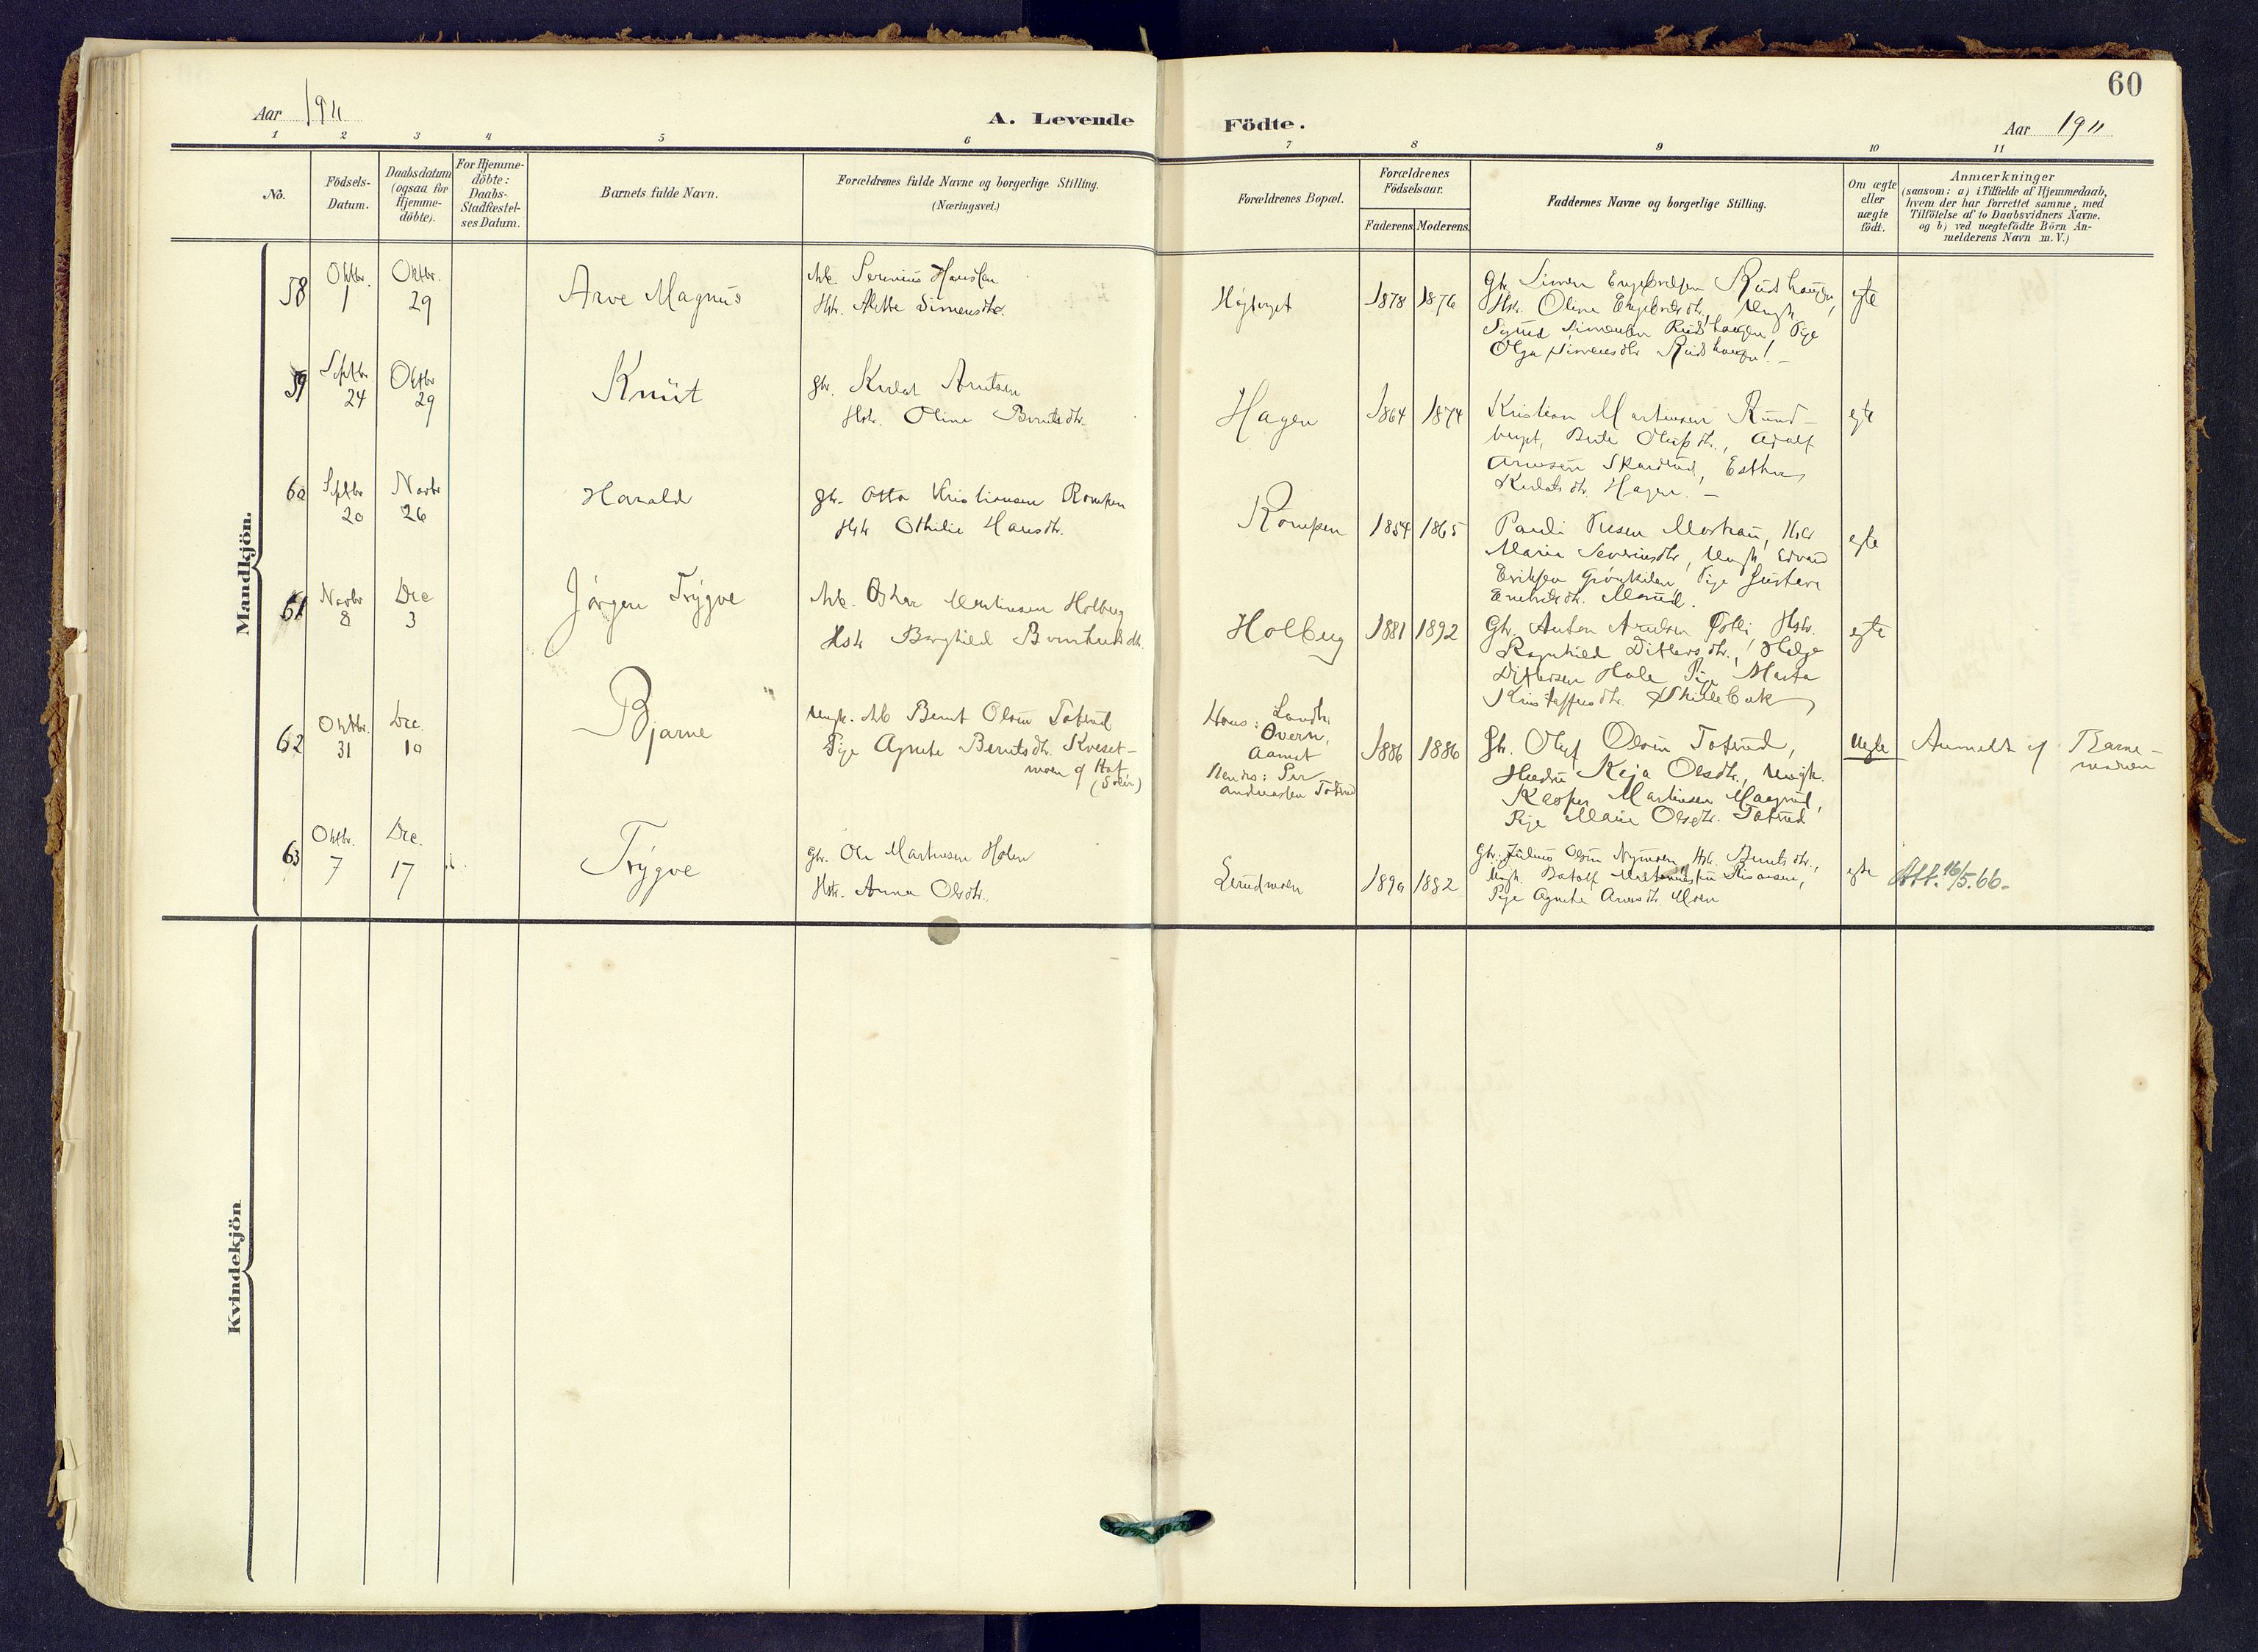 60
Aar 1911
A. Levende
Födte.
Aar 1911
1 2 3 4 5 6 7 8 9 10 11
No.
Födsels-
Datum.
Daabsdatum
(ogsaa for
Hjemme-
döbte).
For Hjemme-
döbte:
Daabs-
Stadfæstel-
ses Datum.
Barnets fulde Navn.
Forældrenes fulde Navne og borgerlige Stilling.
(Næringsvei.)
Forældrenes Bopæl.
Forældrenes
Födselsaar.
Faderens
Moderens
Faddernes Navne og borgerlige Stilling.
Om ægte
eller
uægte
födt.
Anmærkninger
(saasom: a) i Tilfælde af Hjemmedaab,
hvem der har forrettet samme, med
Tilföielse af to Daabsvidners Navne.
og b) ved uægtefödte Börn An-
melderens Navn m. V.)
Mandkjön.
58
Oktbr.
1
Oktbr.
29
Arve Magnus
Hanssen
Hstr. Alette Simensdtr.
1878 1876
Gbr. Simen Engebretsen Rudshaugen,
Hstr. Oline Engebretsdtr., Ungk.
Sigurd Simensen Rudshaugen, Pige
Olga Simensdtr. Rudshaugen! -
egte
59
Septbr.
24
Oktbr
29
Knut
Gbr. Arntsen
Hstr. Oline Berntsdtr.
Hagen
1864 1874
Kristian Martinsen Rund-
berget, Berte Olufsdtr., Adolf
Arnesen Esther
Hagen. -
egte
60
Septbr
20
Novbr
26
Harald
Gbr. Otto Kristiansen Rompen
Hstr Othilie Hansdtr.
Rompen
1854 1865
Pauli
Marie Severinsdtr, Ungk. Edvard
Eriksen Pige Gustava
egte
61
Novbr
8
Dec
3
Jörgen Trygve
Arb. Oskar Martinsen Holberg
Hstr Borghild
Holberg
1881 1892
Gbr. Anton Hstr.
Ragnhild Ditlevsdtr., Helge
Ditlevsen Hole Pige Marta
Kristoffersdtr. Skillebæk
egte
62
Oktbr.
31
Dec.
10
Bjarne
Ungk. Arb Bernt Olsen Tofsrud
Pige Agnete Berntsdtr. Kveset-
moen af Hof
(Solör)
Hans: Landh.
Overn,
Aamot
Hendes: Per
Andreassen
1886 1886
Gbr. Oluf Olsen Tofsrud,
Hustru Kaja Olsdtr., Ungk.
Kasper Martinsen
Pige Marie Olsdtr. Tofsrud
uegte
Anmeldt af Barne-
moren
63
Oktbr.
7
Dec.
17
Trygve
Gbr. Ole Martinsen Holen
Hstr. Anna Olsdtr.
1890 1882
Gbr. Julius Olsen Nymoen, Hstr. Berntsdtr.,
Ungk.
Pige Agnete Arnesdtr. Moen
egte
Att. 16/5.66.
Kvindekjön